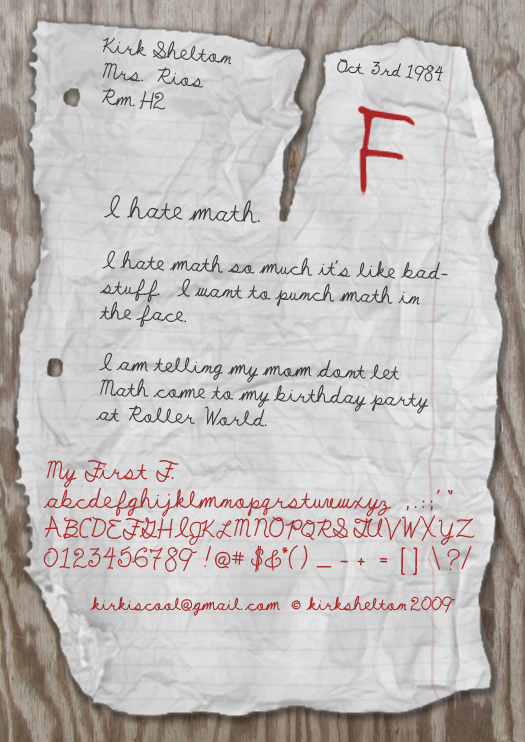 Kirk Shelton
Mrs. Rios
Rm. H2
Oct 3rd 1984
F
I hate math.
I hate math so much it's like bad-
stuff I want to punch math in
the face.
I am telling my mom dont let
Math come to my birthday party
at Roller World.
My First F.
abcdefghijklmnopqrstuvwxyz ,.:;'"
ABCDEFGHIJKLMNOPQRSTUVWXYZ
0123456789 !@#$&*() _ - + = [] \?/
kirkiscool@gmail.com © kirkshelton2009